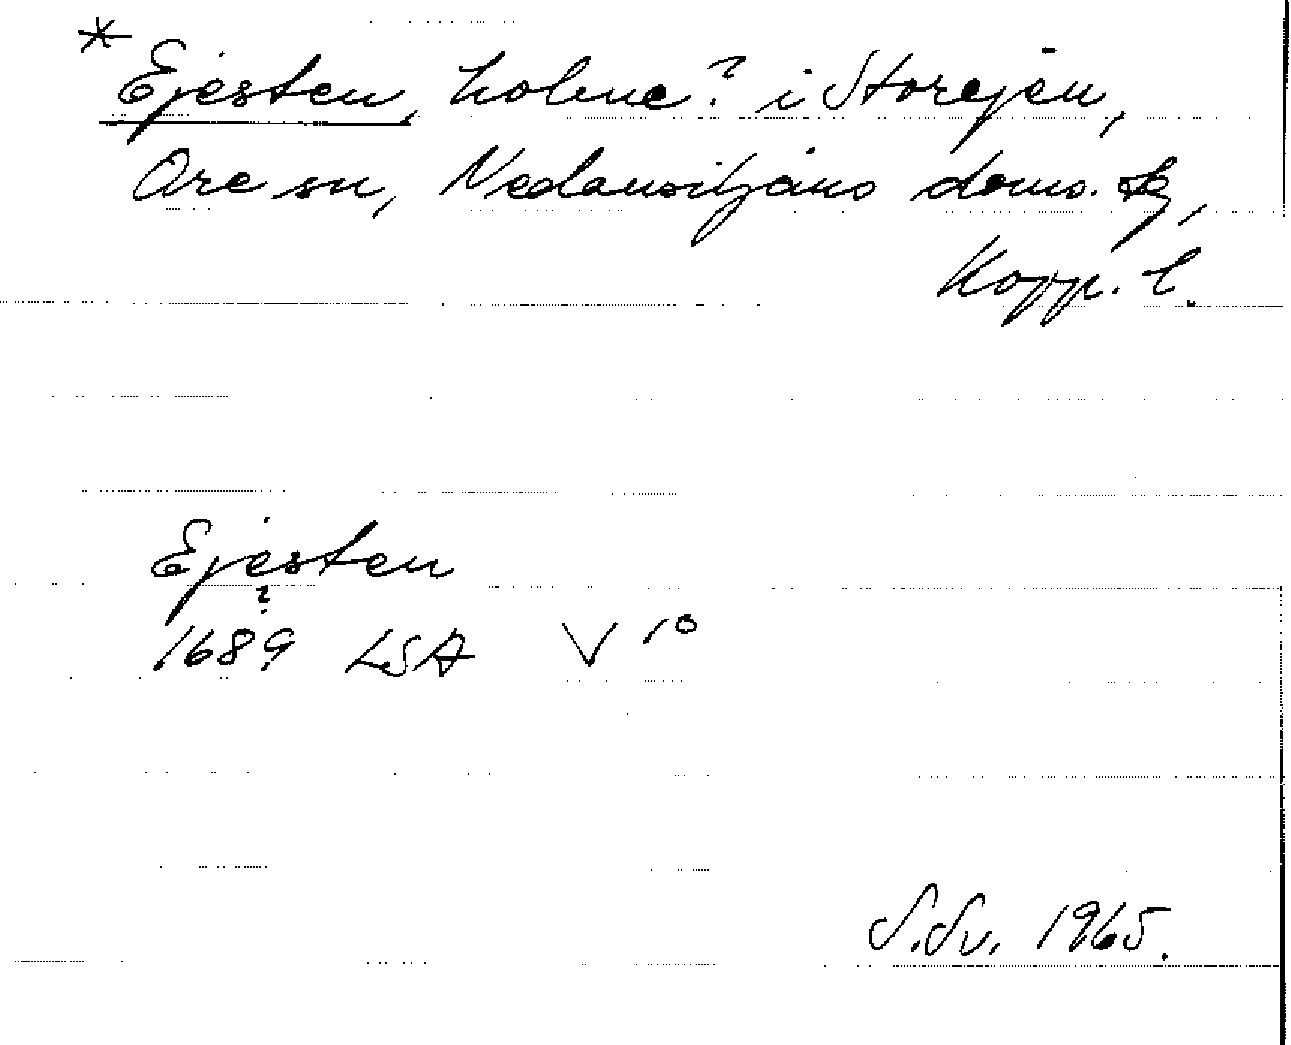 * Ejesten, holme? i Storejen,
Ore sn, Nedansiljans doms.
Kopp. l.
Ejesten
?
1689 LSA V 10
S.Sv. 1965.